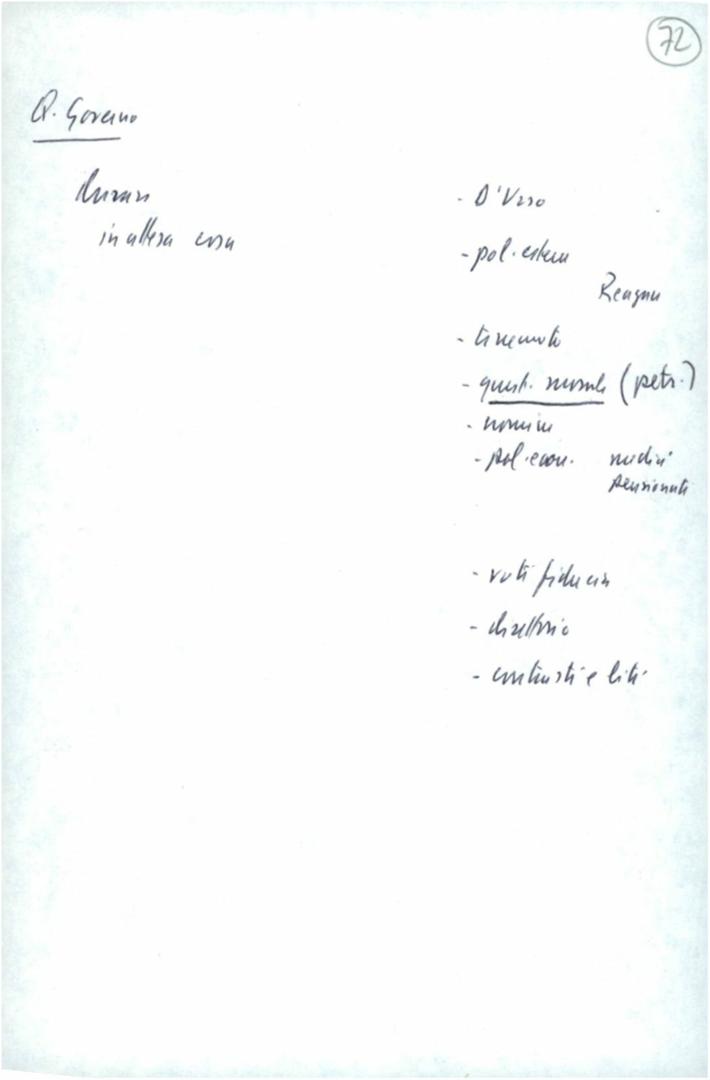 72
Q. Governo
durare
in attesa cosa
- D'Urso
- pol. estera
Reagan
- terremoto
- quest. morale (petr.)
- nomine
- pol. econ. medici
pensionati
- voti fiducia
- direttorio
- contrasti e liti